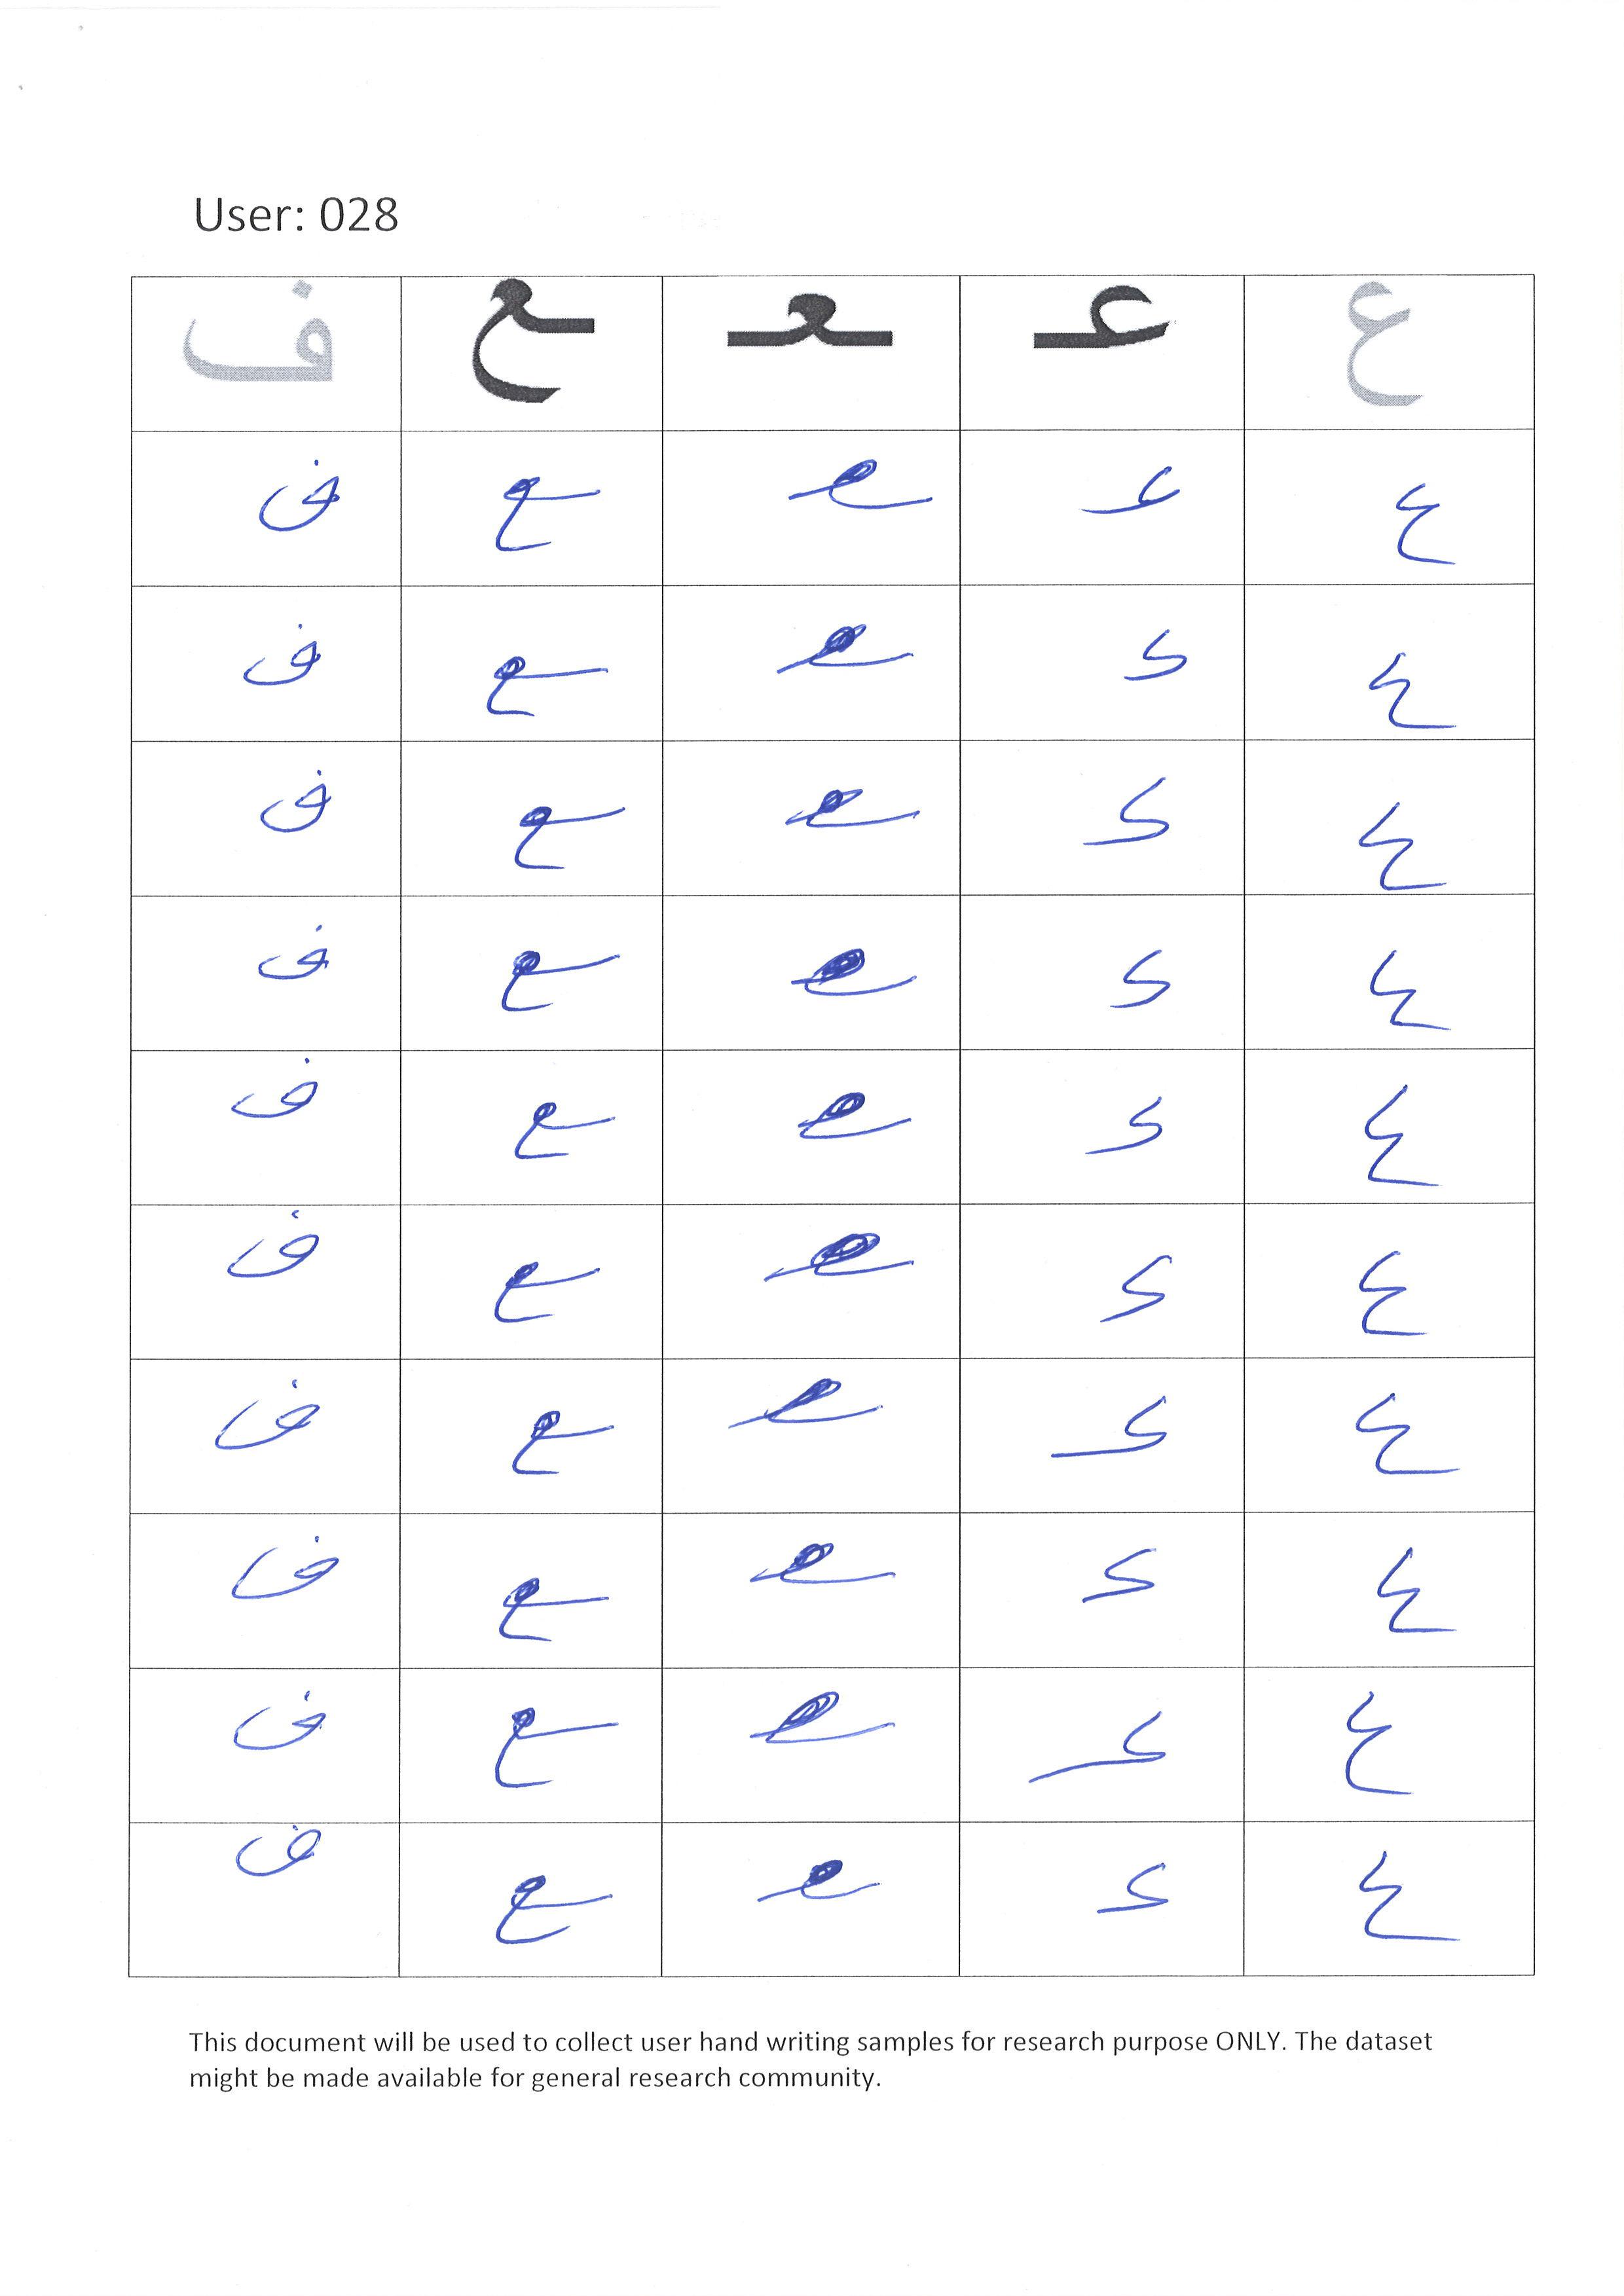 User: 028
ع عـ ـعـ ـع ف
ع عـ ـعـ ـع ف
ع عـ ـعـ ـع ف
ع عـ ـعـ ـع ف
ع عـ ـعـ ـع ف
ع عـ ـعـ ـع ف
ع عـ ـعـ ـع ف
ع عـ ـعـ ـع ف
ع عـ ـعـ ـع ف
ع عـ ـعـ ـع ف
ع عـ ـعـ ـع ف
This document will be used to collect user hand writing samples for research purpose ONLY. The dataset
might be made available for general research community.